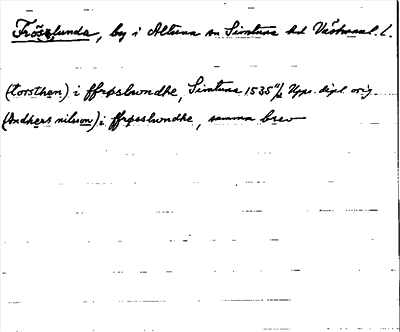 Fröslunda, by i Altuna sn Simtuna hd Västmanl. l.
(torsthen) i ffrøslwndhe, Simtuna 1535 Upps. dipl. orig
(Andhers nilsson) i ffrøsslwndhe, samma brev